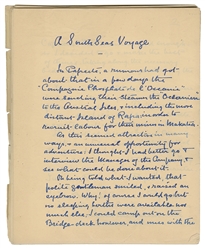 A South Seas Voyage
In Papeete, a rumour had got
about that in a few days the
"Compagnie Phosphate de l'Oceanie"
were sending their steamer the Oceanien
to the Austral Isles & including the more
distant Island of Rapa in order to
recruit labour for their mines in Makatea.
As this seemed attractive in many
ways & an unusual opportunity for
adventure, I thought I had better go &
interview the Manager of the Company, &
see what could be done about it.
On being told what I wanted that
polite gentleman smiled, & raised an
eyebrow. Why, of course I could go, but
no sleeping berths were available nor
much else, I could camp out on the
Bridge-deck however, and mess with the